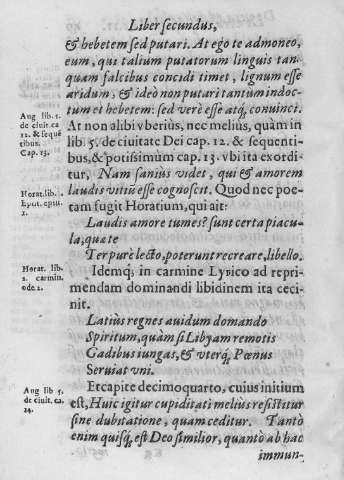 Liber secundus,
& hebetem sed putari. At ego te admoneo,
eum, qui talium putatorum linguis tan-
quam falcibus concidi timet, lignum esse
aridum, & ideò non putari tantùm indoc-
tum et hebetem: sed verè esse atq; convinci.
At non alibi vberius, nec melius, quàm in
lib. 5. de ciuitate Dei cap. 12. & sequenti-
bus, & potissimum cap. 13. vbi ita exordi-
tur, Nam sanius videt, qui & amorem
laudis vitiũ esse cognoscit. Quod nec poe-
tam fugit Horatium, qui ait:
Laudis amore tumes? sunt certa piacu-
la, quæ te
Ter pure lecto, poterunt recreare, libello.
Idemq; in carmine Lysico ad repri-
mendam dominandi libidinem ita ceci-
nit.
Latiùs regnes auidum domando
Spiritum, quàm si Libyam remotis
Gadibus iungas, & vterq; Pœnus
Seruiat vni.
Et capite decimoquarto, cuius initium
est, Huic igitur cupiditati meliùs resistitur
sine dubitatione, quam ceditur. Tantò
enim quisq; est Deo similior, quantò ab hac
immun-
Aug lib. 5.
de ciuit. ca
12. & sequẽ
tibus.
Cap. 13.
Horat. lib. 1.
Epist. epist.
1.
Horat. lib.
2. carmin.
ode 2.
Aug lib 5.
de ciuit. ca.
14.